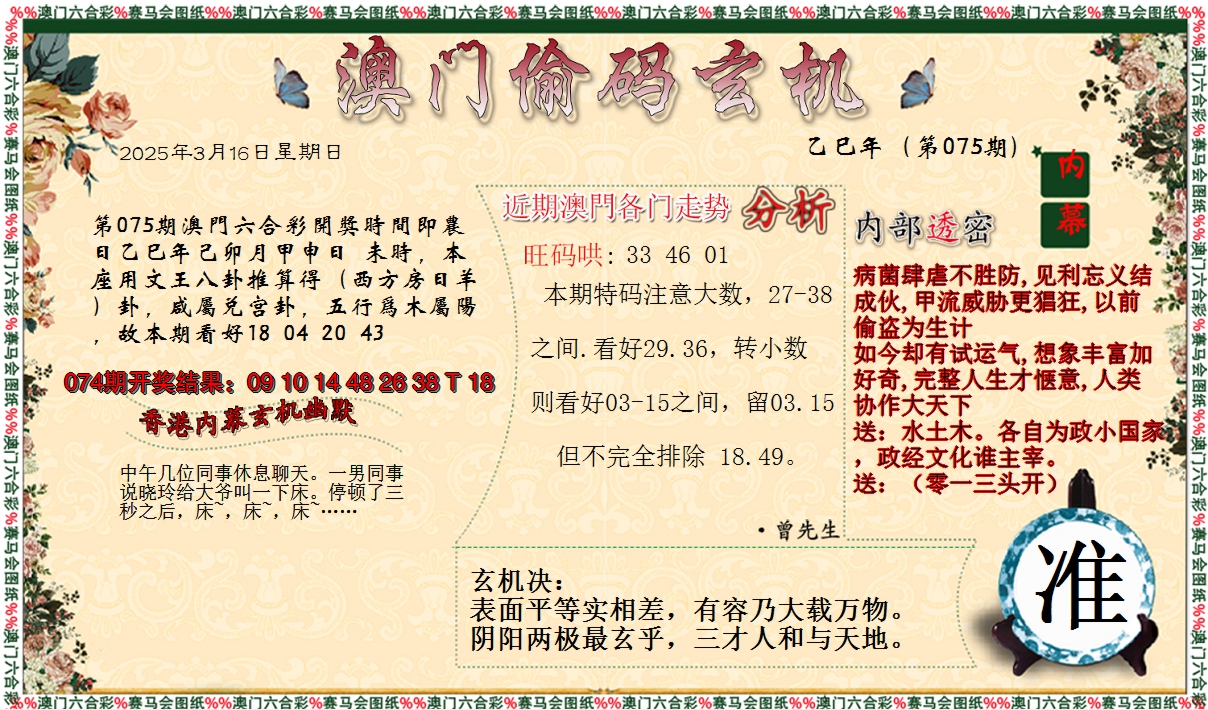 %%澳门六合彩%赛马会图纸%%澳门六合彩%赛马会图纸%%澳门六合彩%赛马会图纸%%澳门六合彩%赛马会图纸%%澳门六合彩%赛马会图纸%%澳门六合彩%赛马会图纸%%
澳门偷码玄机
2025年3月16日星期日
乙巳年（第075期）
内幕
第075期澳門六合彩開獎時間即農
日乙巳年己卯月甲申日 未時，本
座用文王八卦推算得（西方房日羊
）卦，咸屬兑宫卦，五行爲木屬陽
，故本期看好18 04 20 43
074期开奖结果：09 10 14 48 26 38 T 18
香港内幕玄机幽默
中午几位同事休息聊天。一男同事
说晓玲给大爷叫一下床。停顿了三
秒之后，床~，床~，床~……
近期澳門各门走势 分析
旺码哄: 33 46 01
本期特码注意大数，27-38
之间.看好29.36，转小数
则看好03-15之间，留03.15
但不完全排除 18.49。
·曾先生
内部透密
病菌肆虐不胜防,见利忘义结
成伙,甲流威胁更猖狂,以前
偷盗为生计
如今却有试运气,想象丰富加
好奇,完整人生才惬意,人类
协作大天下
送：水土木。各自为政小国家
，政经文化谁主宰。
送：（零一三头开）
玄机决：
表面平等实相差，有容乃大载万物。
阴阳两极最玄乎，三才人和与天地。
准
%%澳门六合彩%赛马会图纸%%澳门六合彩%赛马会图纸%%澳门六合彩%赛马会图纸%%澳门六合彩%赛马会图纸%%澳门六合彩%赛马会图纸%%澳门六合彩%赛马会图纸%%